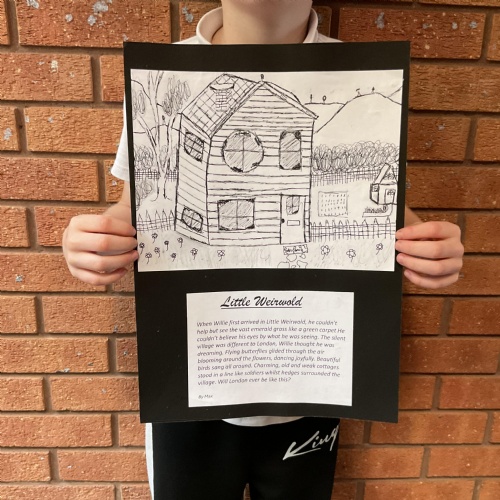 Little Weirwold
When Willie first arrived in Little Weirwold, he couldn't
help but see the vast emerald grass like a green carpet. He
couldn't believe his eyes by what he was seeing. The silent
village was different to London. Willie thought he was
dreaming. Flying butterflies glided through the air
blooming around the flowers, dancing joyfully. Beautiful
birds sang all around. Charming, old and week cottages
stood in a line like soldiers whilst hedges surrounded the
village. Will London ever be like this?
By Max